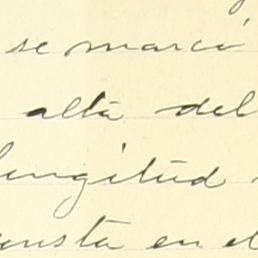 se marcó
alta del
longitud
consta en el